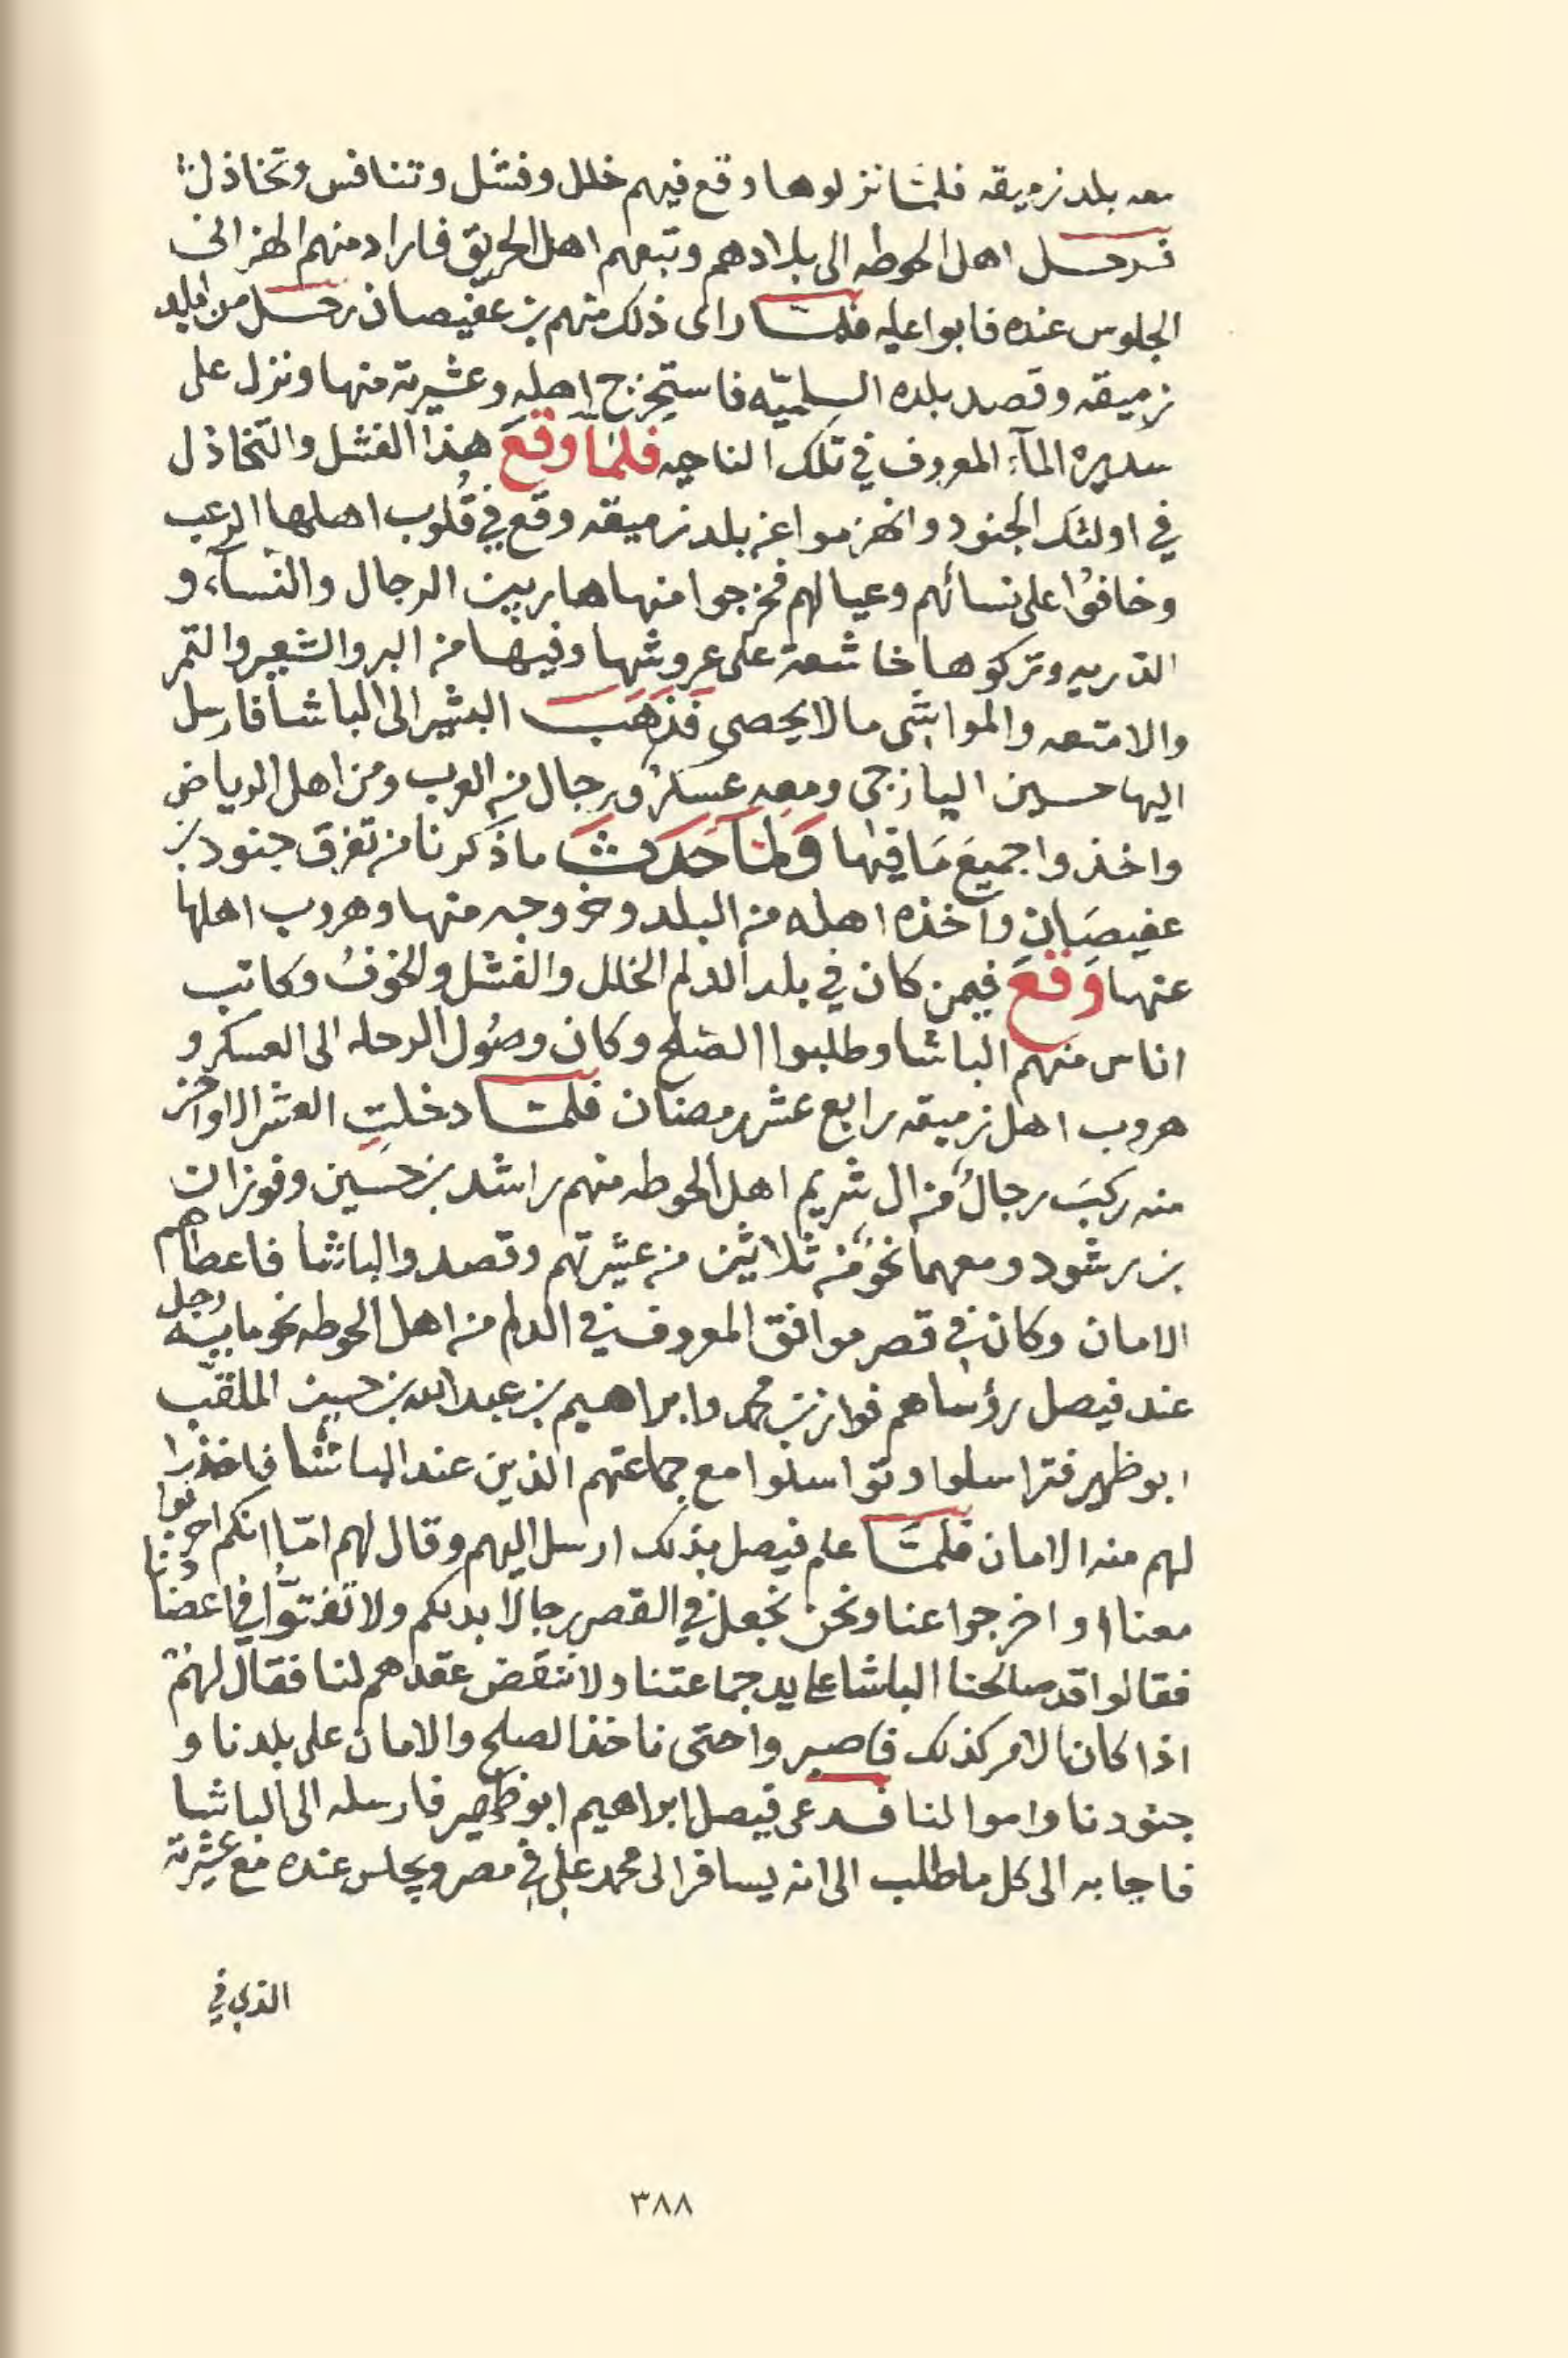 معه بلد زميقه فلمّا نزلوها وقع فيهم خلل وفشل وتنافس وتخاذل
فرحل اهل الحوطه الى بلادهم وتبعهم اهل الحريق فاراد منهم الهزاني
الجلوس عنده فابوا عليه فلمّا رأى ذلك منهم بن عفيصان رحل من البلد
زميقه وقصد بلده السلميّه فاستخرج اهله وعشيرته منها ونزل على
سديره المآء المعروف في تلك الناحيه فلمّا وَقَعَ هذا الفشل والتّخاذل
في اولئك الجنود وانهزموا عن بلد زميقه وقع في قُلوب اهلها الرعب
وخافوُا على نسائهم وعيالهم فخرجوا منها هاربين الرجال والنّسآء و
الذريه وتركوها خاشعة على عروشها وفيها من البر والشعير والتمر
والامتعه والمواشي مالا يحصى فَذَهَبَ البشير الى الباشا فارسل
اليها حسين اليازجي ومعه عسكرٌ ورجال من العرب ومن اهل الرياض
واخذوا جميعَ مَا فيها وَلمّا حَدَثَ ما ذكرنا من تفرق جنود بن
عفيصَان وأخذه اهله من البلد وخروجه منها وهروب اهلها
عنها وَقَعَ فيمن كان في بلد الدلم الخلل والفشل والخوفُ وكاتب
اناس منهم الباشا وطلبوا الصّلح وكان وصُول الرحله الى العسكر و
هروب اهل زميقه رابع عشر رمضان فلمّا دخلتِ العشر الاواخر
منه ركبَ رجالٌ من ال شريم اهل الحوطه منهم راشد بن حسين وفوزان
بن رشود ومعهما نحوٌ من ثلاثين من عشيرتهم وقصدوا الباشا فاعطاهم
الامان وكان في قصر موافق المعروف في الدلم من اهل الحوطه نحو مايتين رجل
عند فيصل رؤساهم فواز بن محمد وابراهيم بن عبدالله بن حسين الملقّب
ابو ظهير فتراسلوا وتواسلوا مع جماعتهم الذين عند الباشا فاخذوا
لهم منه الامان فلمّا علم فيصل بذلك ارسل اليهم وقال لهم امّا انكم احربوا
معنا او اخرجوا عنا ونحن نجعل في القصر رجالا بدلكم ولا تفتوّا في اعضُادنا
فقالوا قد صالحنا الباشا على يد جماعتنا ولا ننقض عقدهم لنا فقال لهم
اذا كان الامر كذلك فاصبروا حتى ناخذ الصلح والامان على بلدنا و
جنودنا واموالنا فدعى فيصل ابراهيم ابو ظهير فارسله الى الباشا
فاجابه الى كل ما طلب الى انه يسافر الى محمد علي في مصر ويجلس عنده مع عشيرته
الذي في
٣٨٨